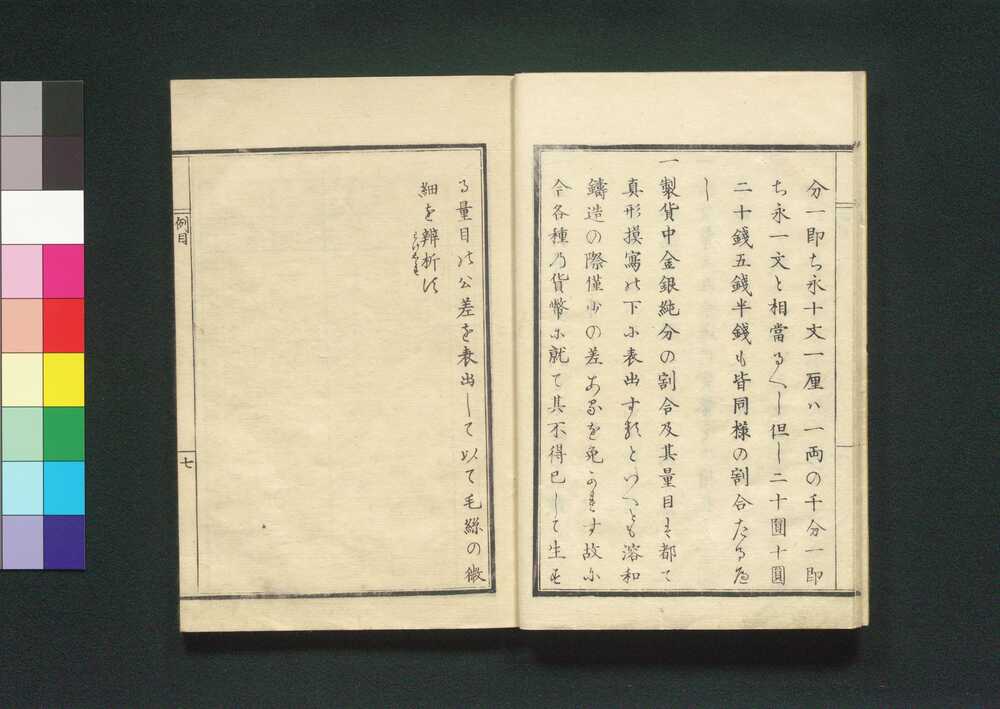 分一即ち永十文一厘ハ一両の千分一即
ち永一文と相當るへし但し二十圓十圓
二十錢五錢半錢も皆同様の割合たるへ
し
一製貨中金銀純分の割合及其量目は都て
真形摸寫の下に表出すれといへとも溶和
鑄造の際僅少の差あるを免かれす故に
今各種乃貨幣に就て其不得已して生す
る量目の公差を表出して以て毛絲の微
細を辨析す
例目
七